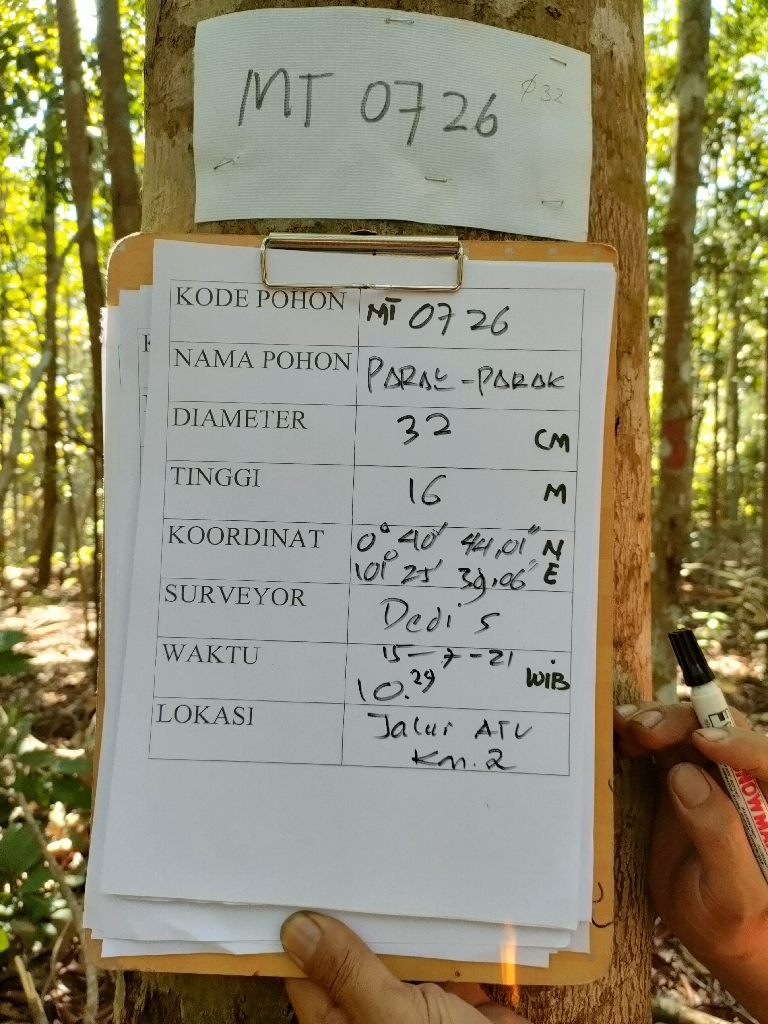 MT 0726
Ø32
KODE POHON MT 0726
NAMA POHON PARAK-PARAK
DIAMETER 32 CM
TINGGI 16 M
KOORDINAT 0° 40' 44,01" N
101° 25' 39,06" E
SURVEYOR Dedi S
WAKTU 15-7-21
10.29 WIB
LOKASI Jalur ATV
Km. 2
SNOWMA